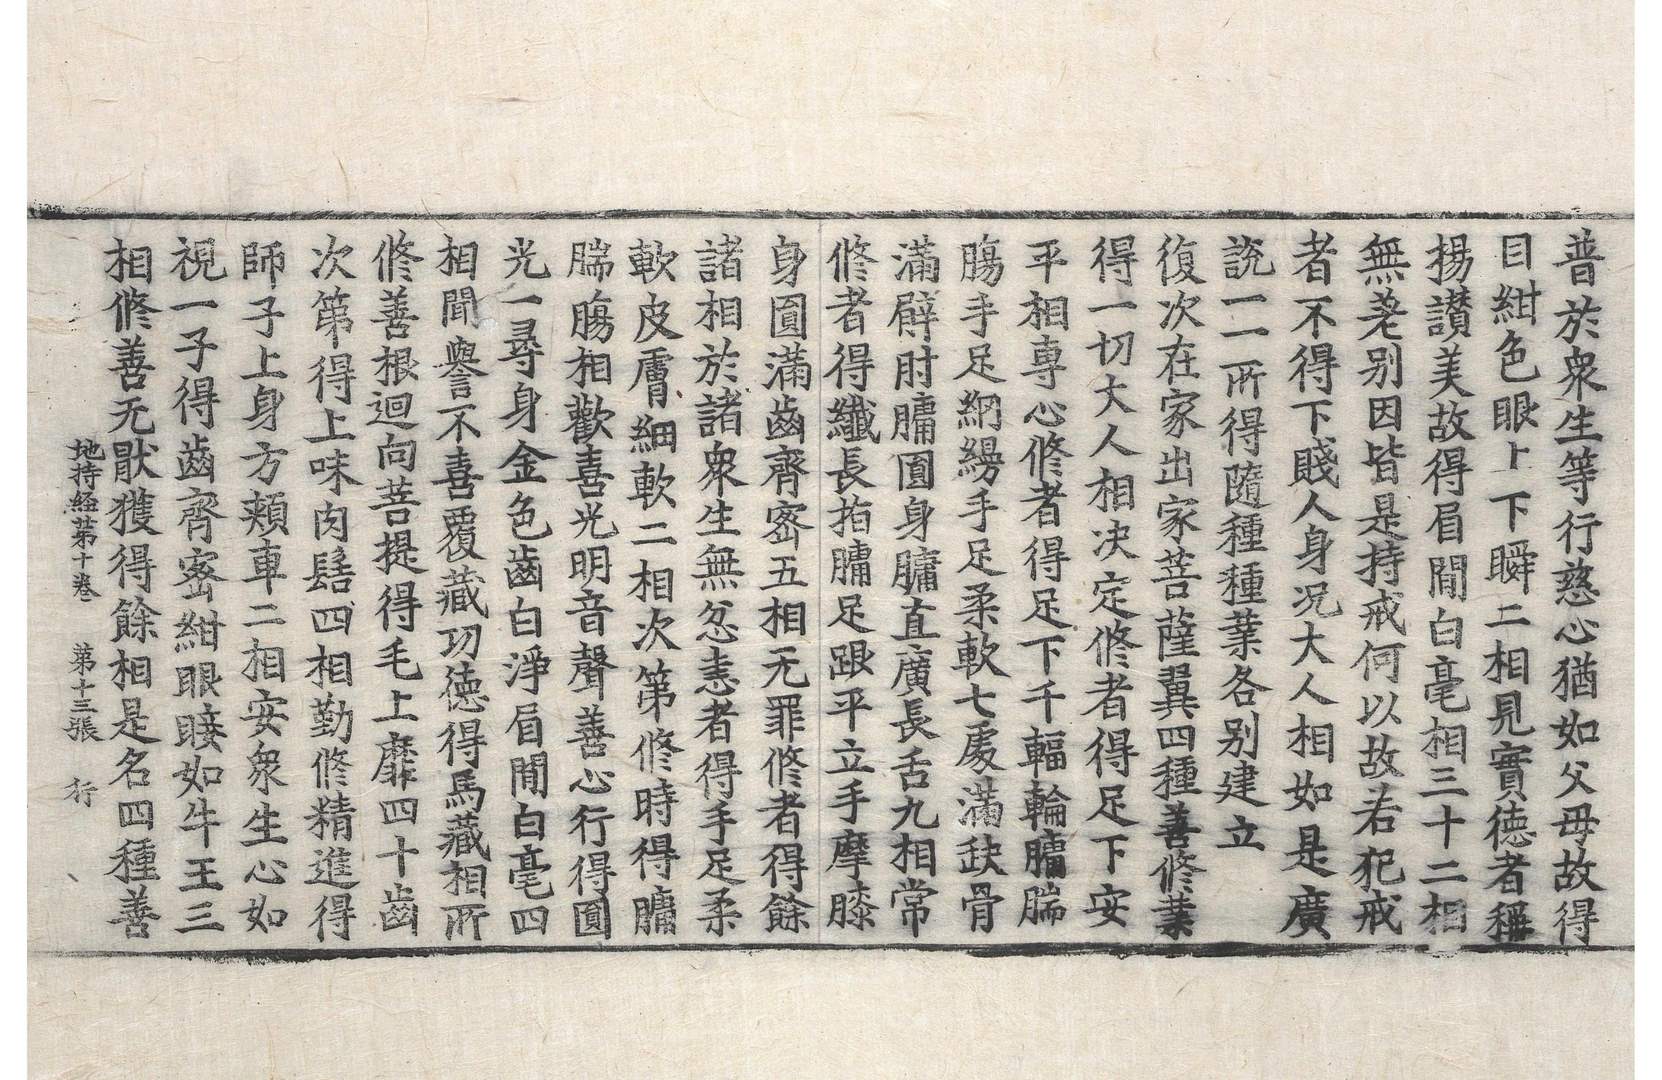 普於衆生等行慈心猶如父母故得
目紺色眼上下瞬二相見實德者稱
揚讃美故得眉間白毫相三十二相
無差别因皆是持戒何以故若犯戒
者不得下賤人身况大人相如是廣
說一一所得隨種種業各别建立
復次在家出家菩薩翼四種善修業
得一切大人相决定修者得足下安
平相專心修者得足下千輻輪𦟛腨
膓手足網縵手足柔軟七處滿缺骨
滿臂肘𦟛圓身𦟛直廣長舌九相常
修者得纖長指𦟛足跟平立手摩膝
身圓滿齒齊密五相无罪修者得餘
諸相於諸衆生無忿恚者得手足柔
軟皮膚細軟二相次第修時得𦟛
腨膓相歡喜光明音聲善心行得圓
光一尋身金色齒白淨眉間白毫四
相聞譽不喜覆藏功德得馬藏相所
修善根迴向菩提得毛上靡四十齒
次第得上味肉髻四相勤修精進得
師子上身方頰車二相安衆生心如
視一子得齒齊密紺眼䀹如牛王三
相修善无猒獲得餘相是名四種善
地持經第十卷 第十三張 行